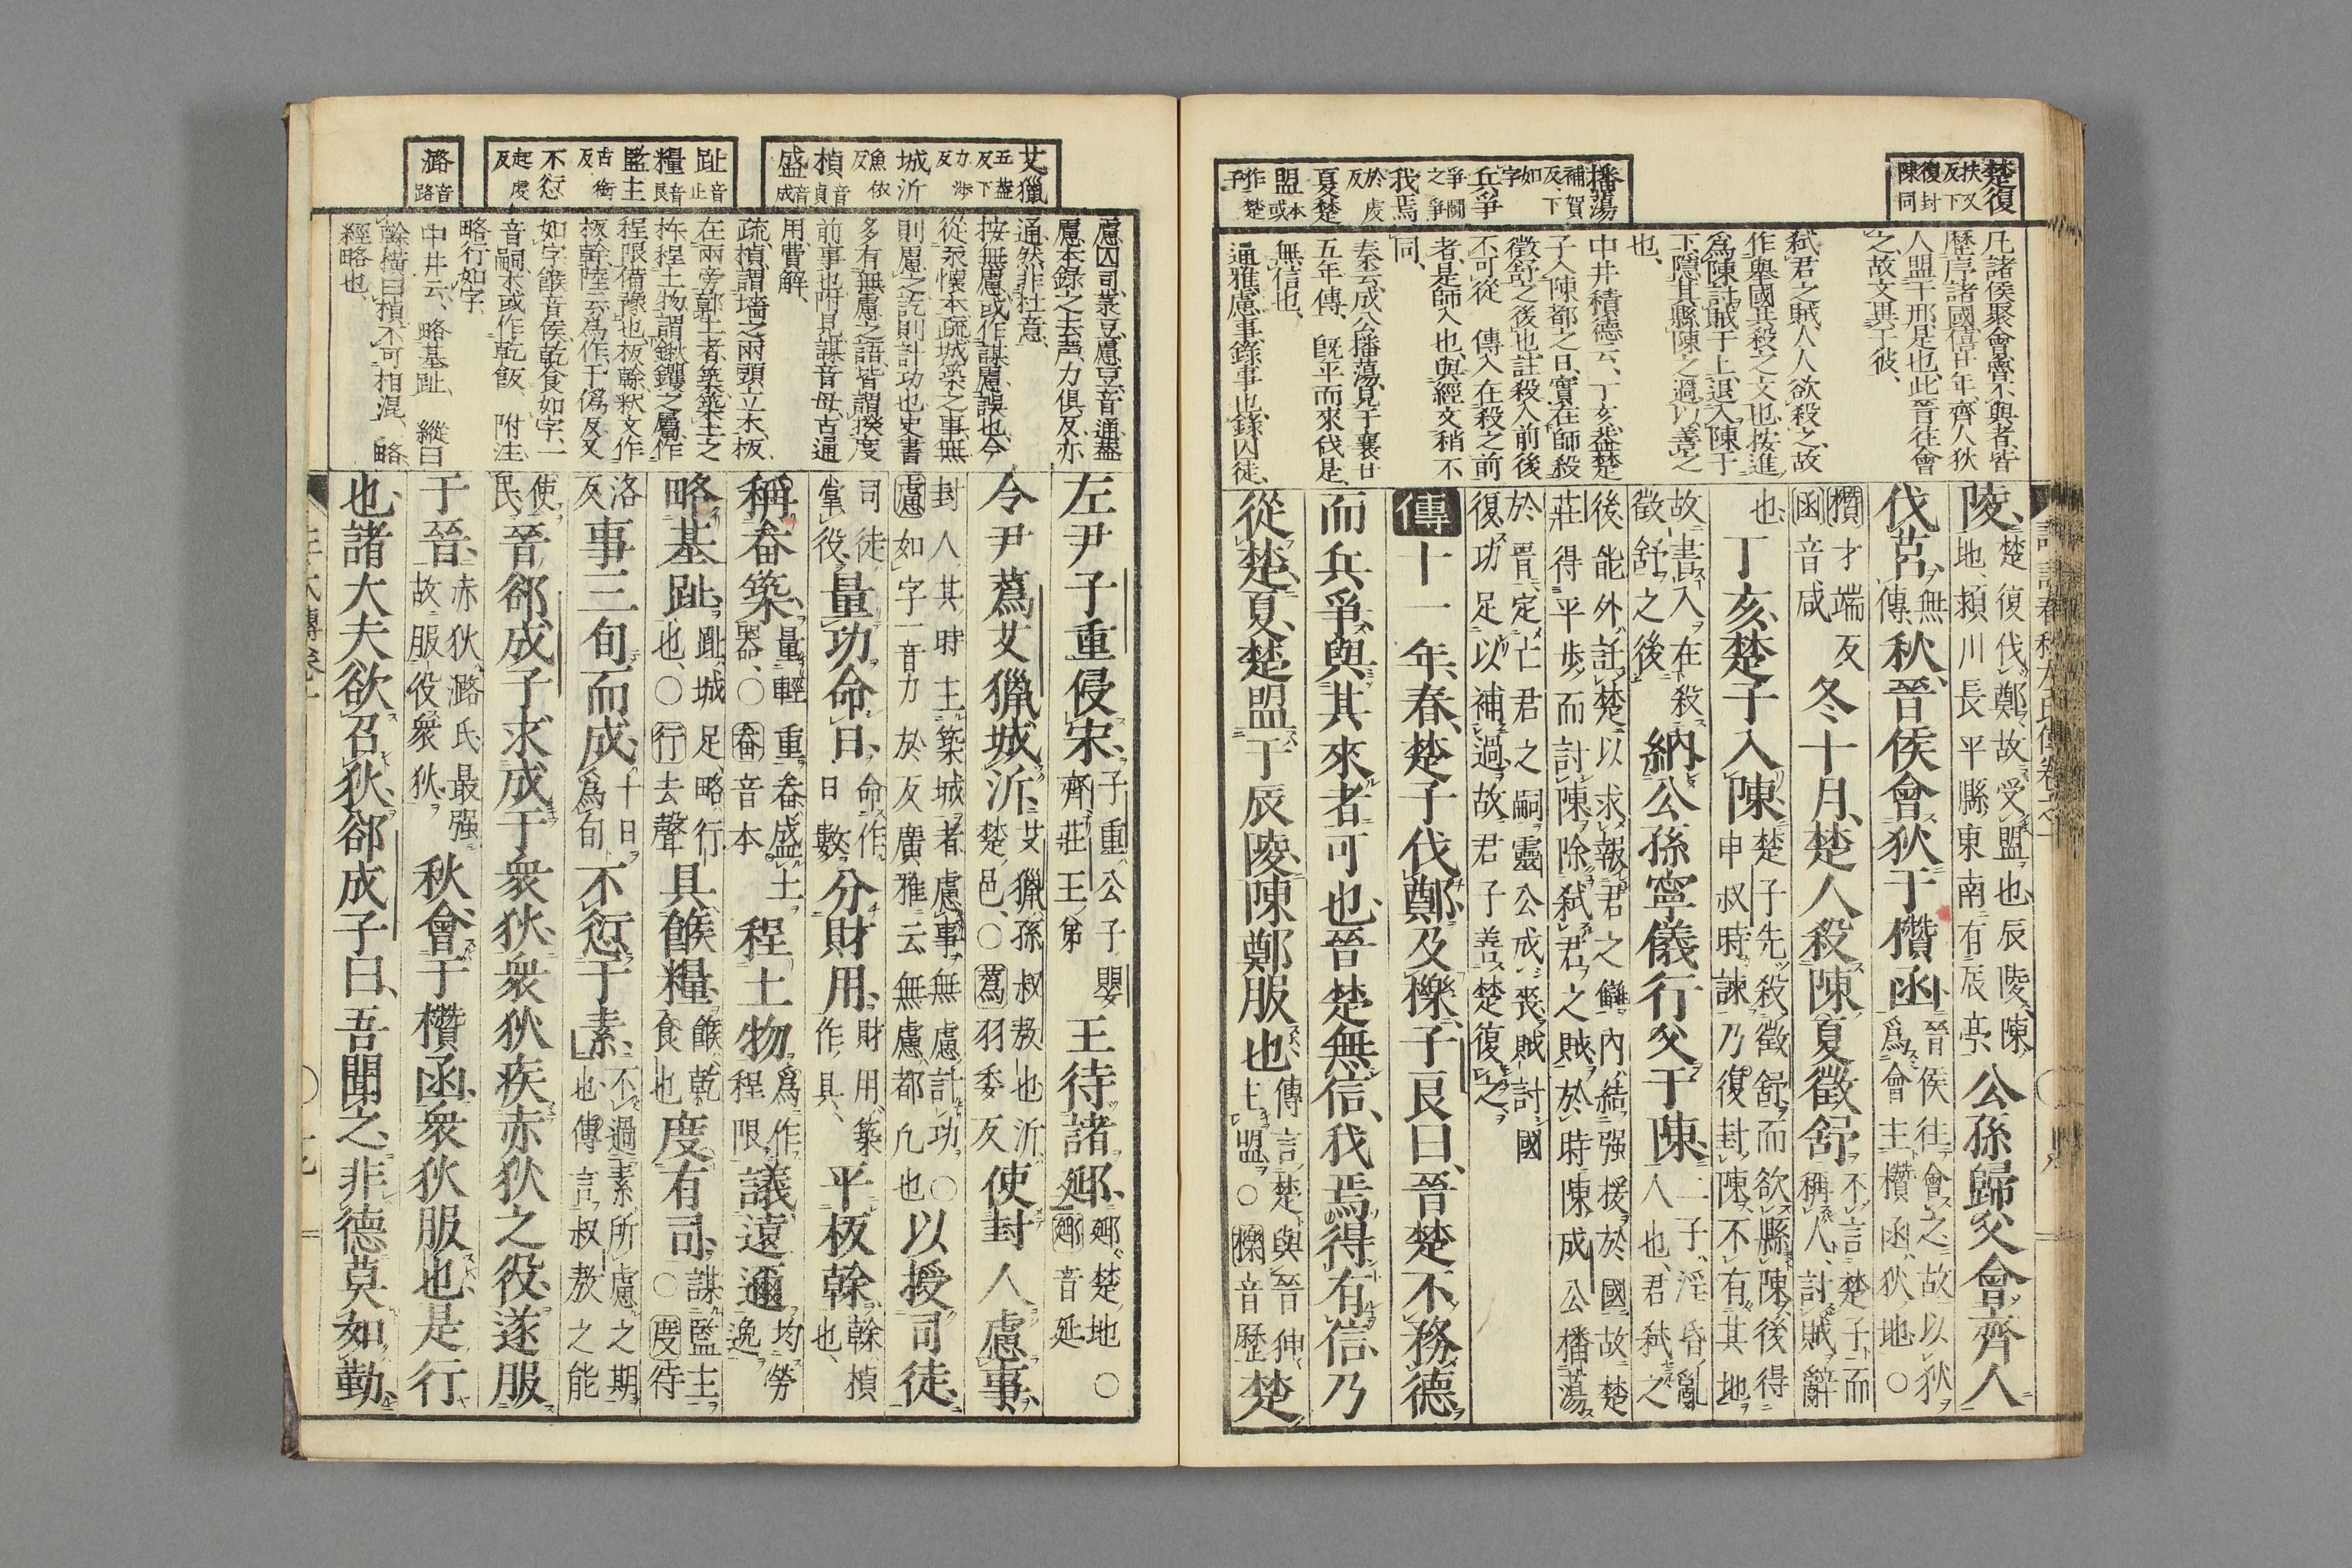 楚復扶又反下復封陳同
播蕩補賀反下如字兵爭爭鬪之爭我焉於虔反夏楚盟本或作楚子
凡諸侯聚會魯不與者皆
歷序諸國僖廿年齊人狄
人盟于邢是也此晉往會
之故文異于彼、
弑君之賊人人欲殺之故
作擧國共殺之文也按進
爲陳討賊于上退入陳于
下隱其縣陳之過以善之
也、
中井積德云、丁亥蓋楚
子入陳都之日實在師殺
徵舒之後也註殺入前後
不可從 傳入在殺之前
者是師入也與經文稍不
同、
秦云成公播蕩見于襄廿
五年傳、既平而來伐是
無信也、
通雅慮事錄事也錄囚徒、
陵、楚復伐鄭故受盟也辰陵陳地潁川長平縣東南有辰亭、公孫歸父會齊人
伐莒、無傳秋晉侯會狄于欑函晉侯往會之故以狄爲會主欑函狄地○
欑才端反函音咸冬十月楚人殺陳夏徵舒不言楚子而稱人討賊辭
也、丁亥楚子入陳楚子先殺徵舒而欲縣陳後得申叔時諫乃復封陳不有其地
故書入在殺徵舒之後納公孫寧儀行父于陳二子淫昏亂人也君弑之
後能外託楚以求報君之讎內結强援於國故楚莊得平步而討陳除弑君之賊於時陳成公播蕩
於晉定亡君之嗣靈公成喪賊討國復功足以補過故君子善楚復之
傳十一年春楚子伐鄭及櫟子良曰晉楚不務德
而兵爭與其來者可也晉楚無信我焉得有信乃
從楚夏楚盟于辰陵陳鄭服也傳言楚與晉狎主盟○櫟音歷楚
艾獵五蓋反下力涉反城沂魚依反楨音貞盛音成
趾音止糧音良監主古銜反不愆起虔反
潞音路
慮囚司
慮本錄之去聲力俱反亦
通然非杜意、
按無慮或作謀慮誤也今
從永懷本疏城築之事無
則慮之訖則計功也史書
多有無慮之語皆謂揆度
前事也附見謀音毋古通
用費解、
疏楨謂墻之兩頭立木板
在兩旁鄣土者築築土之
杵程土物謂鍬钁之屬作
程限備豫也板榦釈文作
板幹陸云爲作于僞反又
如字餱音侯乾食如字一
音嗣本或作乾飯、附注
略行如字、
中井云、略基趾、縱曰
榦橫曰楨不可相混、略
經略也、
左尹子重侵宋子重公子嬰齊莊王弟王待諸郔郔楚地○郔音延
令尹蔿艾獵城沂艾獵孫叔敖也沂楚邑○蔿羽委反使封人慮事
封人其時主築城者慮事無慮計功○慮如字一音力於反廣雅云無慮都凡也以授司徒
司徒掌役量功命日命作日數分財用財用築作具、平板榦榦楨也、
稱畚築量輕重畚盛土器○畚音本程土物爲作程限議遠邇均勞逸
略基趾趾城足略行也○行去聲具餱糧餱乾食也度有司謀監主○度待
洛反事三旬而成十日爲旬不愆于素不過素所慮之期也傳言叔敖之能
使民晉郤成子求成于衆狄衆狄疾赤狄之役遂服
于晉赤狄潞氏最强故服役衆狄秋會于欑函衆狄服也是行
也諸大夫欲召狄郤成子曰吾聞之非德莫如勤